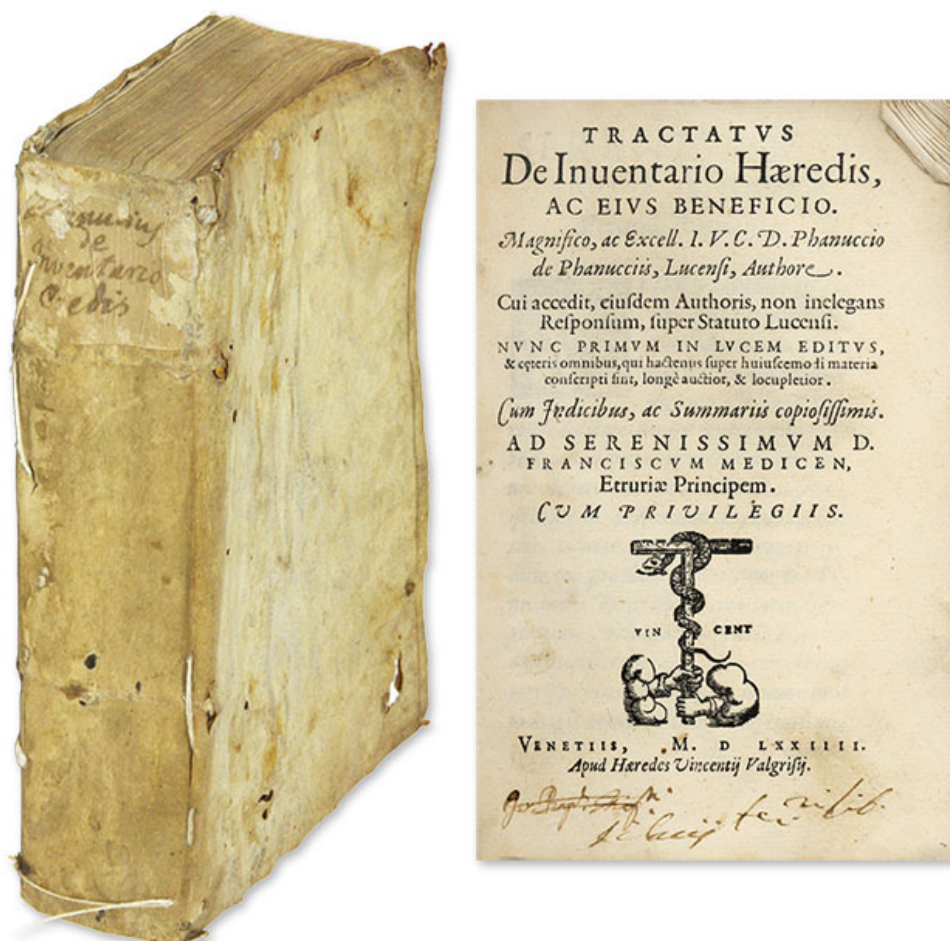 de
Inventario
TRACTATVS
De Inuentario Hæredis,
AC EIVS BENEFICIO.
Magnifico, ac Excell. I. V. C. D. Phanuccio
de Phanucciis, Lucensi, Authore.
Cui accedit, eiusdem Authoris, non inelegans
Responsum, super Statuto Lucensi.
NVNC PRIMVM IN LVCEM EDITVS,
& cęteris omnibus, qui hactenus super huiuscemodi materia
conscripti sint, longè auctior, & locupletior.
Cum Indicibus, ac Summariis copiosissimis.
AD SERENISSIMVM D.
FRANCISCVM MEDICEN,
Etruriæ Principem.
CVM PRIVILEGIIS.
VIN CENT
VENETIIS, M. D LXXIIII.
Apud Hæredes Vincentij Valgrisij.